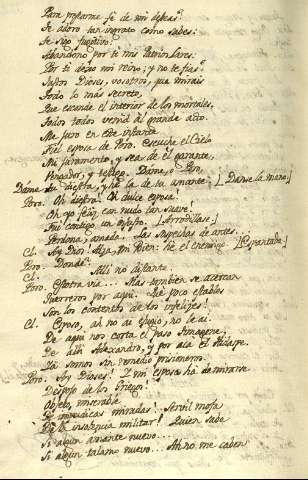 Para prestarme fé de mi defeas?
Te adoro tan ingrato como sabes:
Te sigo fugitivo:
Abandono por ti mis Patrios Lares:
Por ti dejo mi reino; y no te fias?
Justos Dioses, vosotros, que mirais
Todo lo más secreto,
Que esconde el interior de los mortales,
Todos todos venid al grande acto.
Me juro en este instante
Fiel esposa de Poro. Escuche el Cielo
Mi juramento, y sea de él garante,
Vengador, y testigo. Dame, o Poro,
Dame tu diestra, y hé la de tu amante: [Danse la mano]
Poro. Oh diestra! Oh dulce esposa!
Oh yo feliz con nudo tan suave!
Fui contigo un injusto. [Arrodillase]
Perdona, amada, las sospechas de antes...
Cl. Ay Dios! Alza, mi Bien: hé el enemigo [Espantada]
Poro. Donde?
Cl. Allí no distante.
Poro. Y otra via... Mas tambien se acercan
Guerreros por aqui. De poco estables
Son los contentos de los infelizes!
Cl. Esposo, ah no ai fugio, no le ai.
De aqui nos corta el paso
De allí Alexandro, y por acá el Hidaspe.
Ya somos sin remedio prisioneros.
Poro. Ay Dioses! Y mi esposa há de mirarse
Despojo de los Griegos!
Objeto miserable
De impudicas miradas! Servil mofa
De la insolencia militar! Quien sabe
Si algun amante nuevo...
Si algun talamo nuevo... Ah no me caben